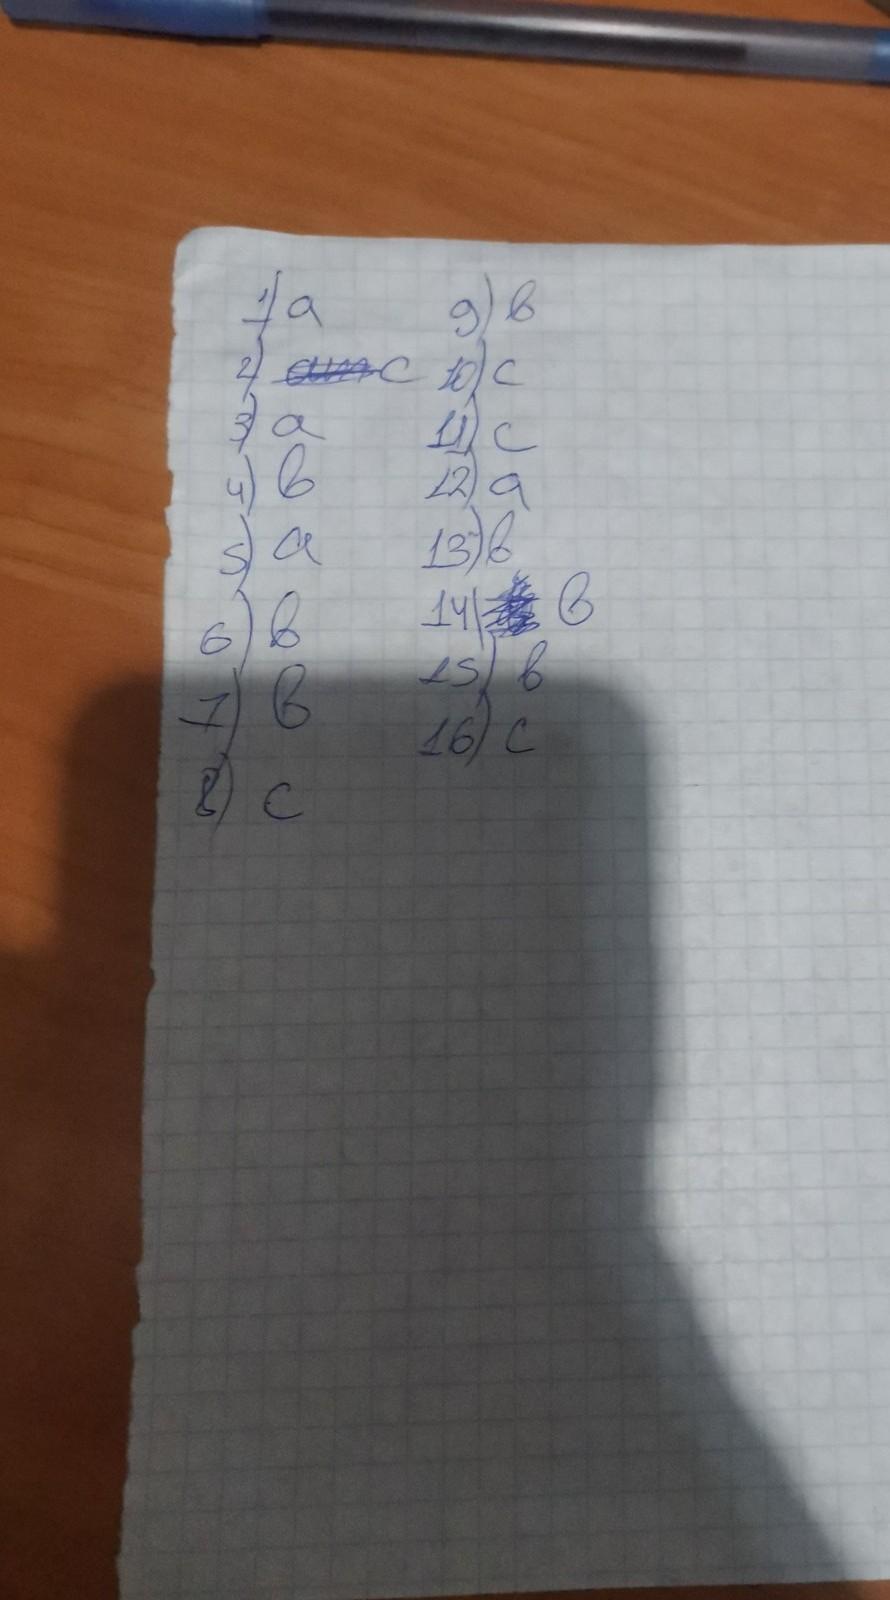 1) a
2) c
3) a
4) b
5) a
6) b
7) b
8) c
9) b
10) c
11) c
12) a
13) b
14) b
15) b
16) c